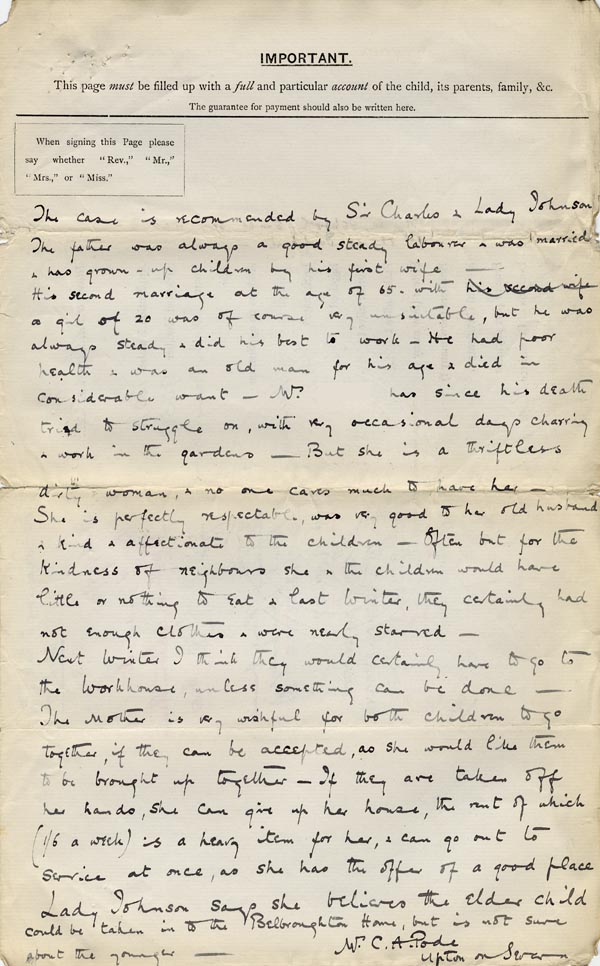 IMPORTANT.
This page must be filled up with a full and particular account of the child, its parents, family, &c.
The guarantee for payment should also be written here.
When signing this Page please
say whether "Rev.," "Mr.,"
"Mrs.," or "Miss."
The case is recommended by Sir Charles & Lady Johnson
The father was always a good steady labourer & was married
& has grown-up children by his first wife —
His second marriage at the age of 65. with his second wife
a girl of 20 was of course very unsuitable, but he was
always steady & did his best to work – He had poor
health & was an old man for his age & died in
considerable want – Mrs has since his death
tried to struggle on, with very occasional days charring
& work in the gardens — But she is a thriftless
dirty woman, & no one cares much to have her –
She is perfectly respectable, was very good to her old husband
& kind & affectionate to the children – Often but for the
kindness of neighbours she & the children would have
little or nothing to eat & last Winter, they certainly had
not enough clothes & were nearly starved –
Next Winter I think they would certainly have to go to
the Workhouse, unless something can be done —
The Mother is very wishful for both children to go
together, if they can be accepted, as she would like them
to be brought up together – If they are taken off
her hands, she can give up her house, the rent of which
(1/6 a week) is a heavy item for her, & can go out to
service at once, as she has the offer of a good place
Lady Johnson says she believes the elder child
could be taken in to the Belbroughton Home, but is not sure
about the younger —
Mrs C. A. Pode
Upton on Severn